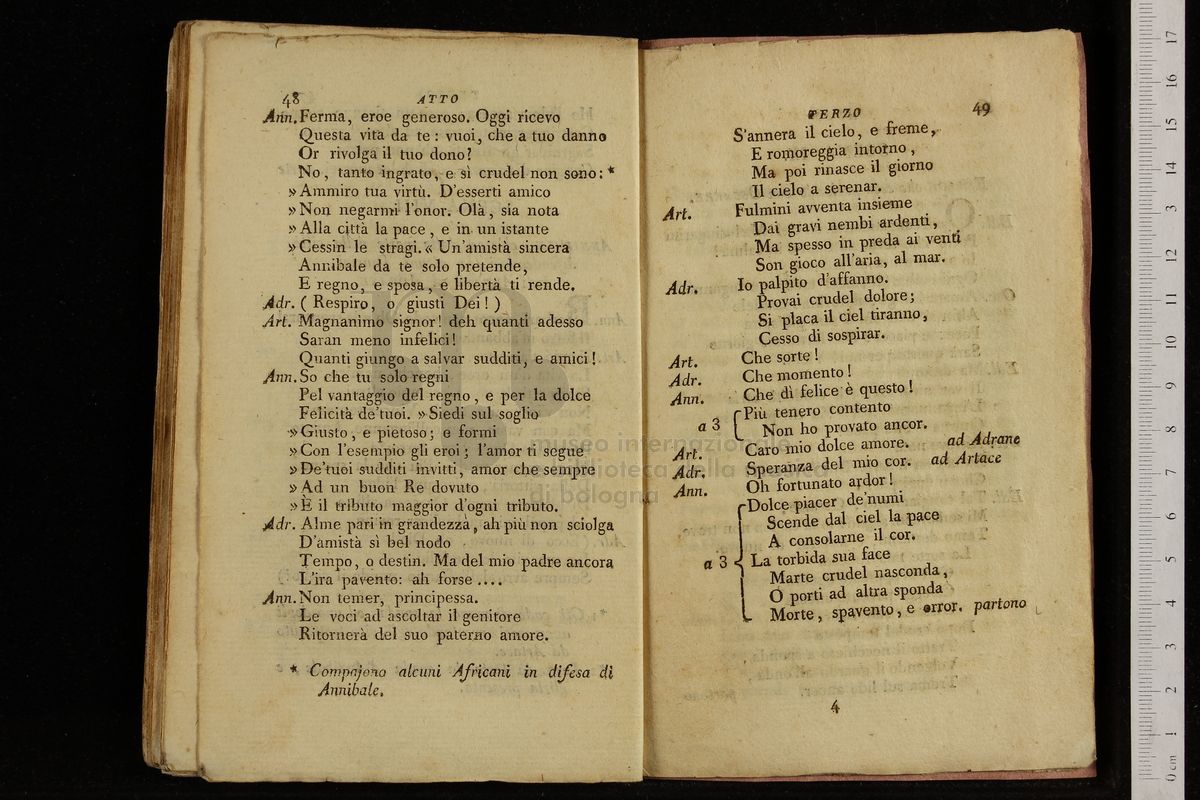 48
ATTO
Ann. Ferma, eroe generoso. Oggi ricevo
Questa vita da te : vuoi, che a tuo danno
Or rivolga il tuo dono?
No, tanto ingrato, e sì crudel non sono: *
» Ammiro tua virtù. D'esserti amico
» Non negarmi l'onor. Olà, sia nota
» Alla città la pace, e in un istante
» Cessin le stragi. « Un'amistà sincera
Annibale da te solo pretende,
E regno, e sposa, e libertà ti rende.
Adr. ( Respiro, o giusti Dei! )
Art. Magnanimo signor! deh quanti adesso
Saran meno infelici!
Quanti giungo a salvar sudditi, e amici!
Ann. So che tu solo regni
Pel vantaggio del regno, e per la dolce
Felicità de'tuoi. » Siedi sul soglio
» Giusto, e pietoso; e formi
» Con l'esempio gli eroi; l'amor ti segue
» De'tuoi sudditi invitti, amor che sempre
» Ad un buon Re dovuto
» È il tributo maggior d'ogni tributo.
Adr. Alme pari in grandezza, ah più non sciolga
D'amistà sì bel nodo
Tempo, o destin. Ma del mio padre ancora
L'ira pavento: ah forse ....
Ann. Non temer, principessa.
Le voci ad ascoltar il genitore
Ritornerà del suo paterno amore.
* Compajono alcuni Africani in difesa di
Annibale.
TERZO
49
S'annera il cielo, e freme,
E romoreggia intorno,
Ma poi rinasce il giorno
Il cielo a serenar.
Art. Fulmini avventa insieme
Dai gravi nembi ardenti,
Ma spesso in preda ai venti
Son gioco all'aria, al mar.
Adr. Io palpito d'affanno.
Provai crudel dolore;
Si placa il ciel tiranno,
Cesso di sospirar.
Art. Che sorte!
Adr. Che momento!
Ann. Che dì felice è questo!
a 3 Più tenero contento
Non ho provato ancor.
Art. Caro mio dolce amore. ad Adrane
Adr. Speranza del mio cor. ad Artace
Ann. Oh fortunato ardor!
Dolce piacer de'numi
Scende dal ciel la pace
A consolarne il cor.
a 3 La torbida sua face
Marte crudel nasconda,
O porti ad altra sponda
Morte, spavento, e error. partono
4
museo internazionale
biblioteca della musica
di bologna
0 cm 1 2 3 4 5 6 7 8 9 10 11 12 13 14 15 16 17